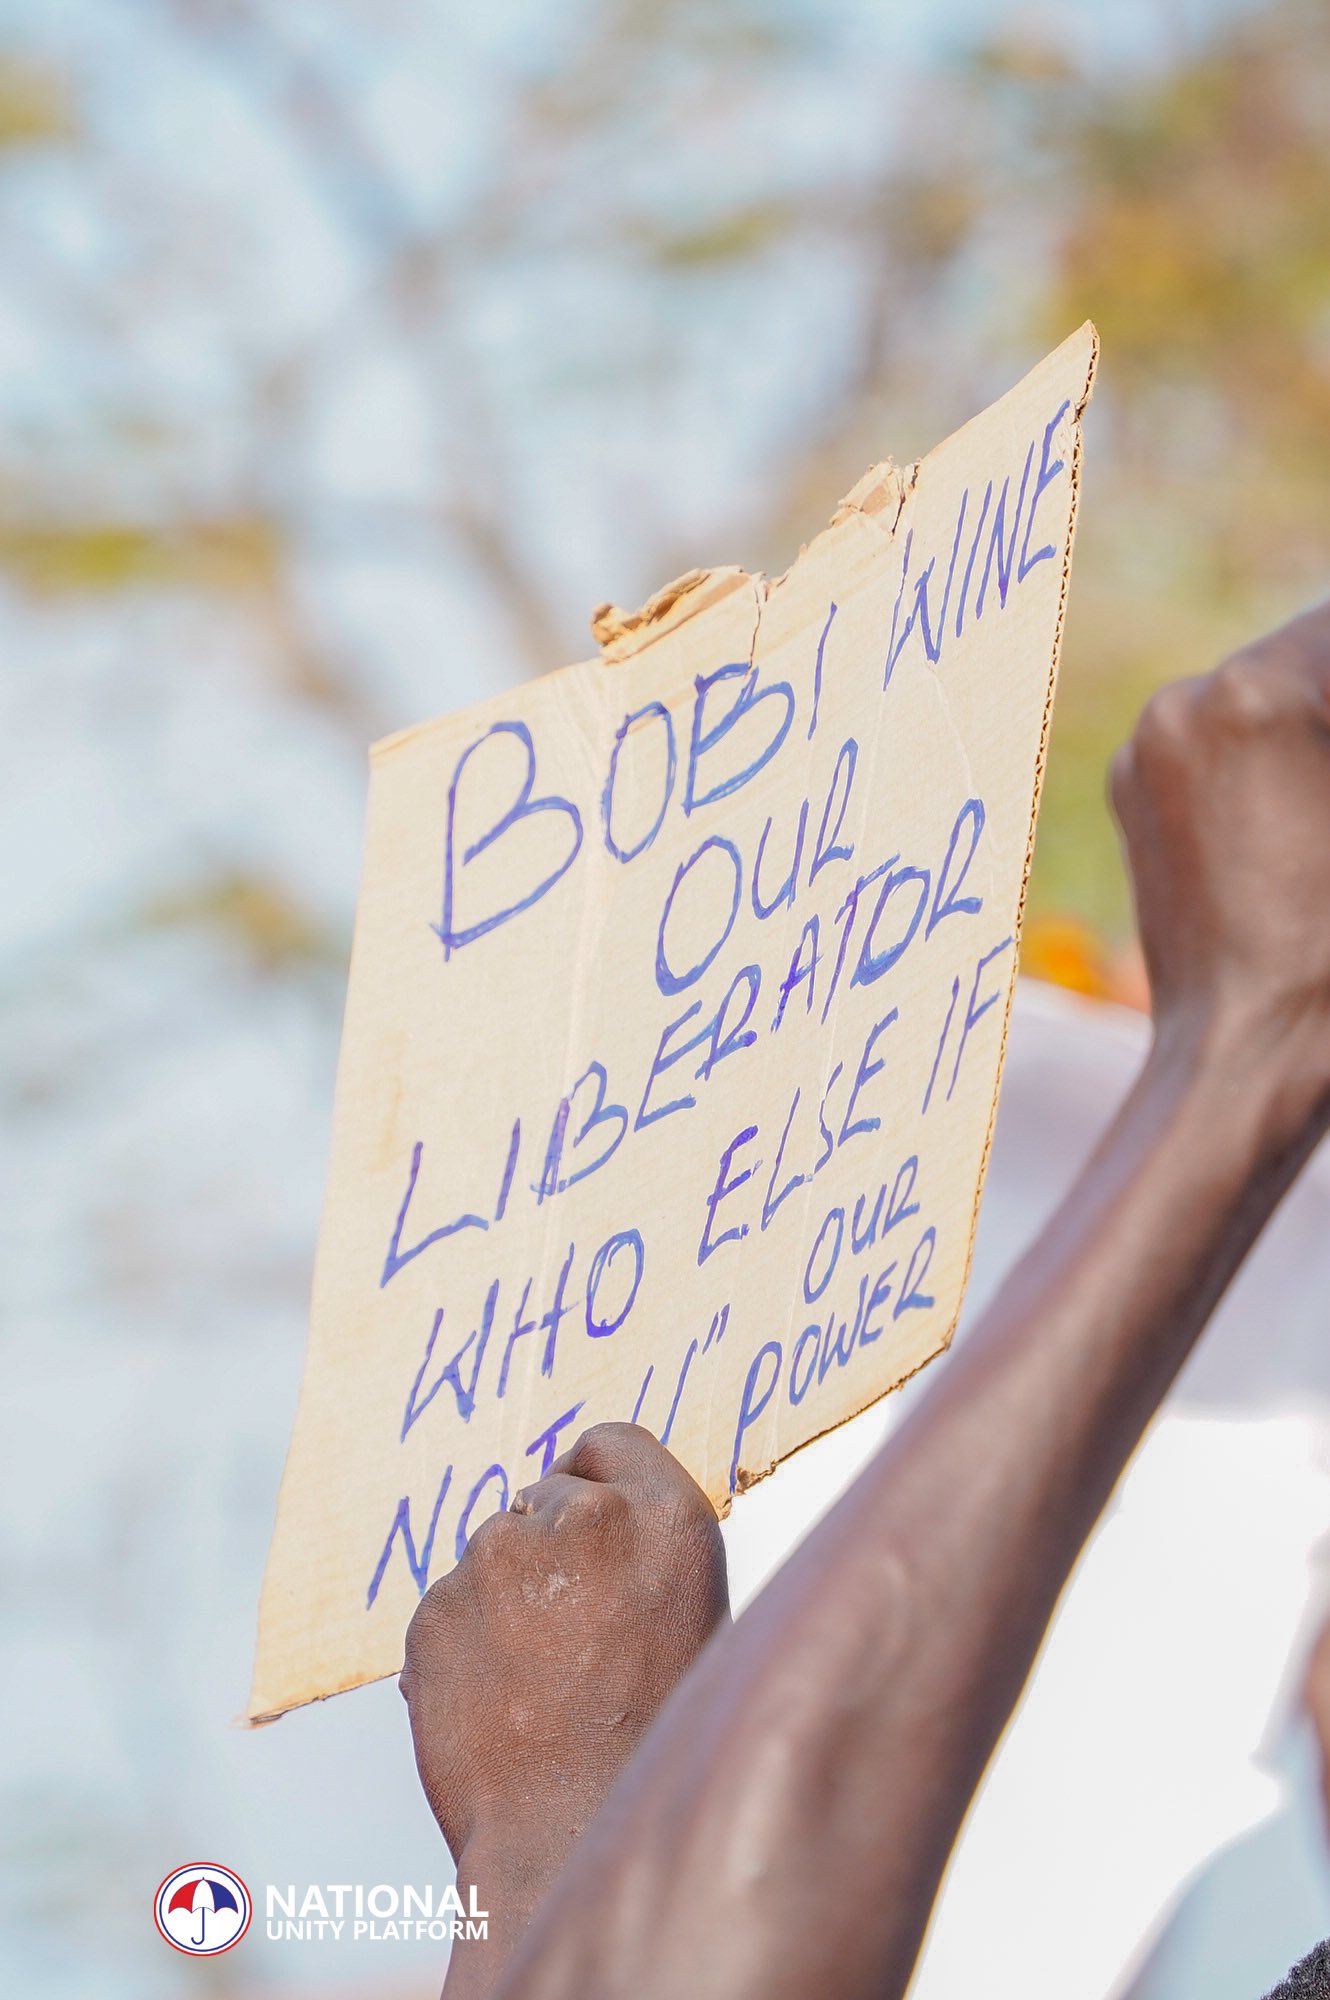 BOBI WINE
OUR
LIBERATOR
WHO ELSE IF
NOT U" OUR
POWER
NATIONAL
UNITY PLATFORM